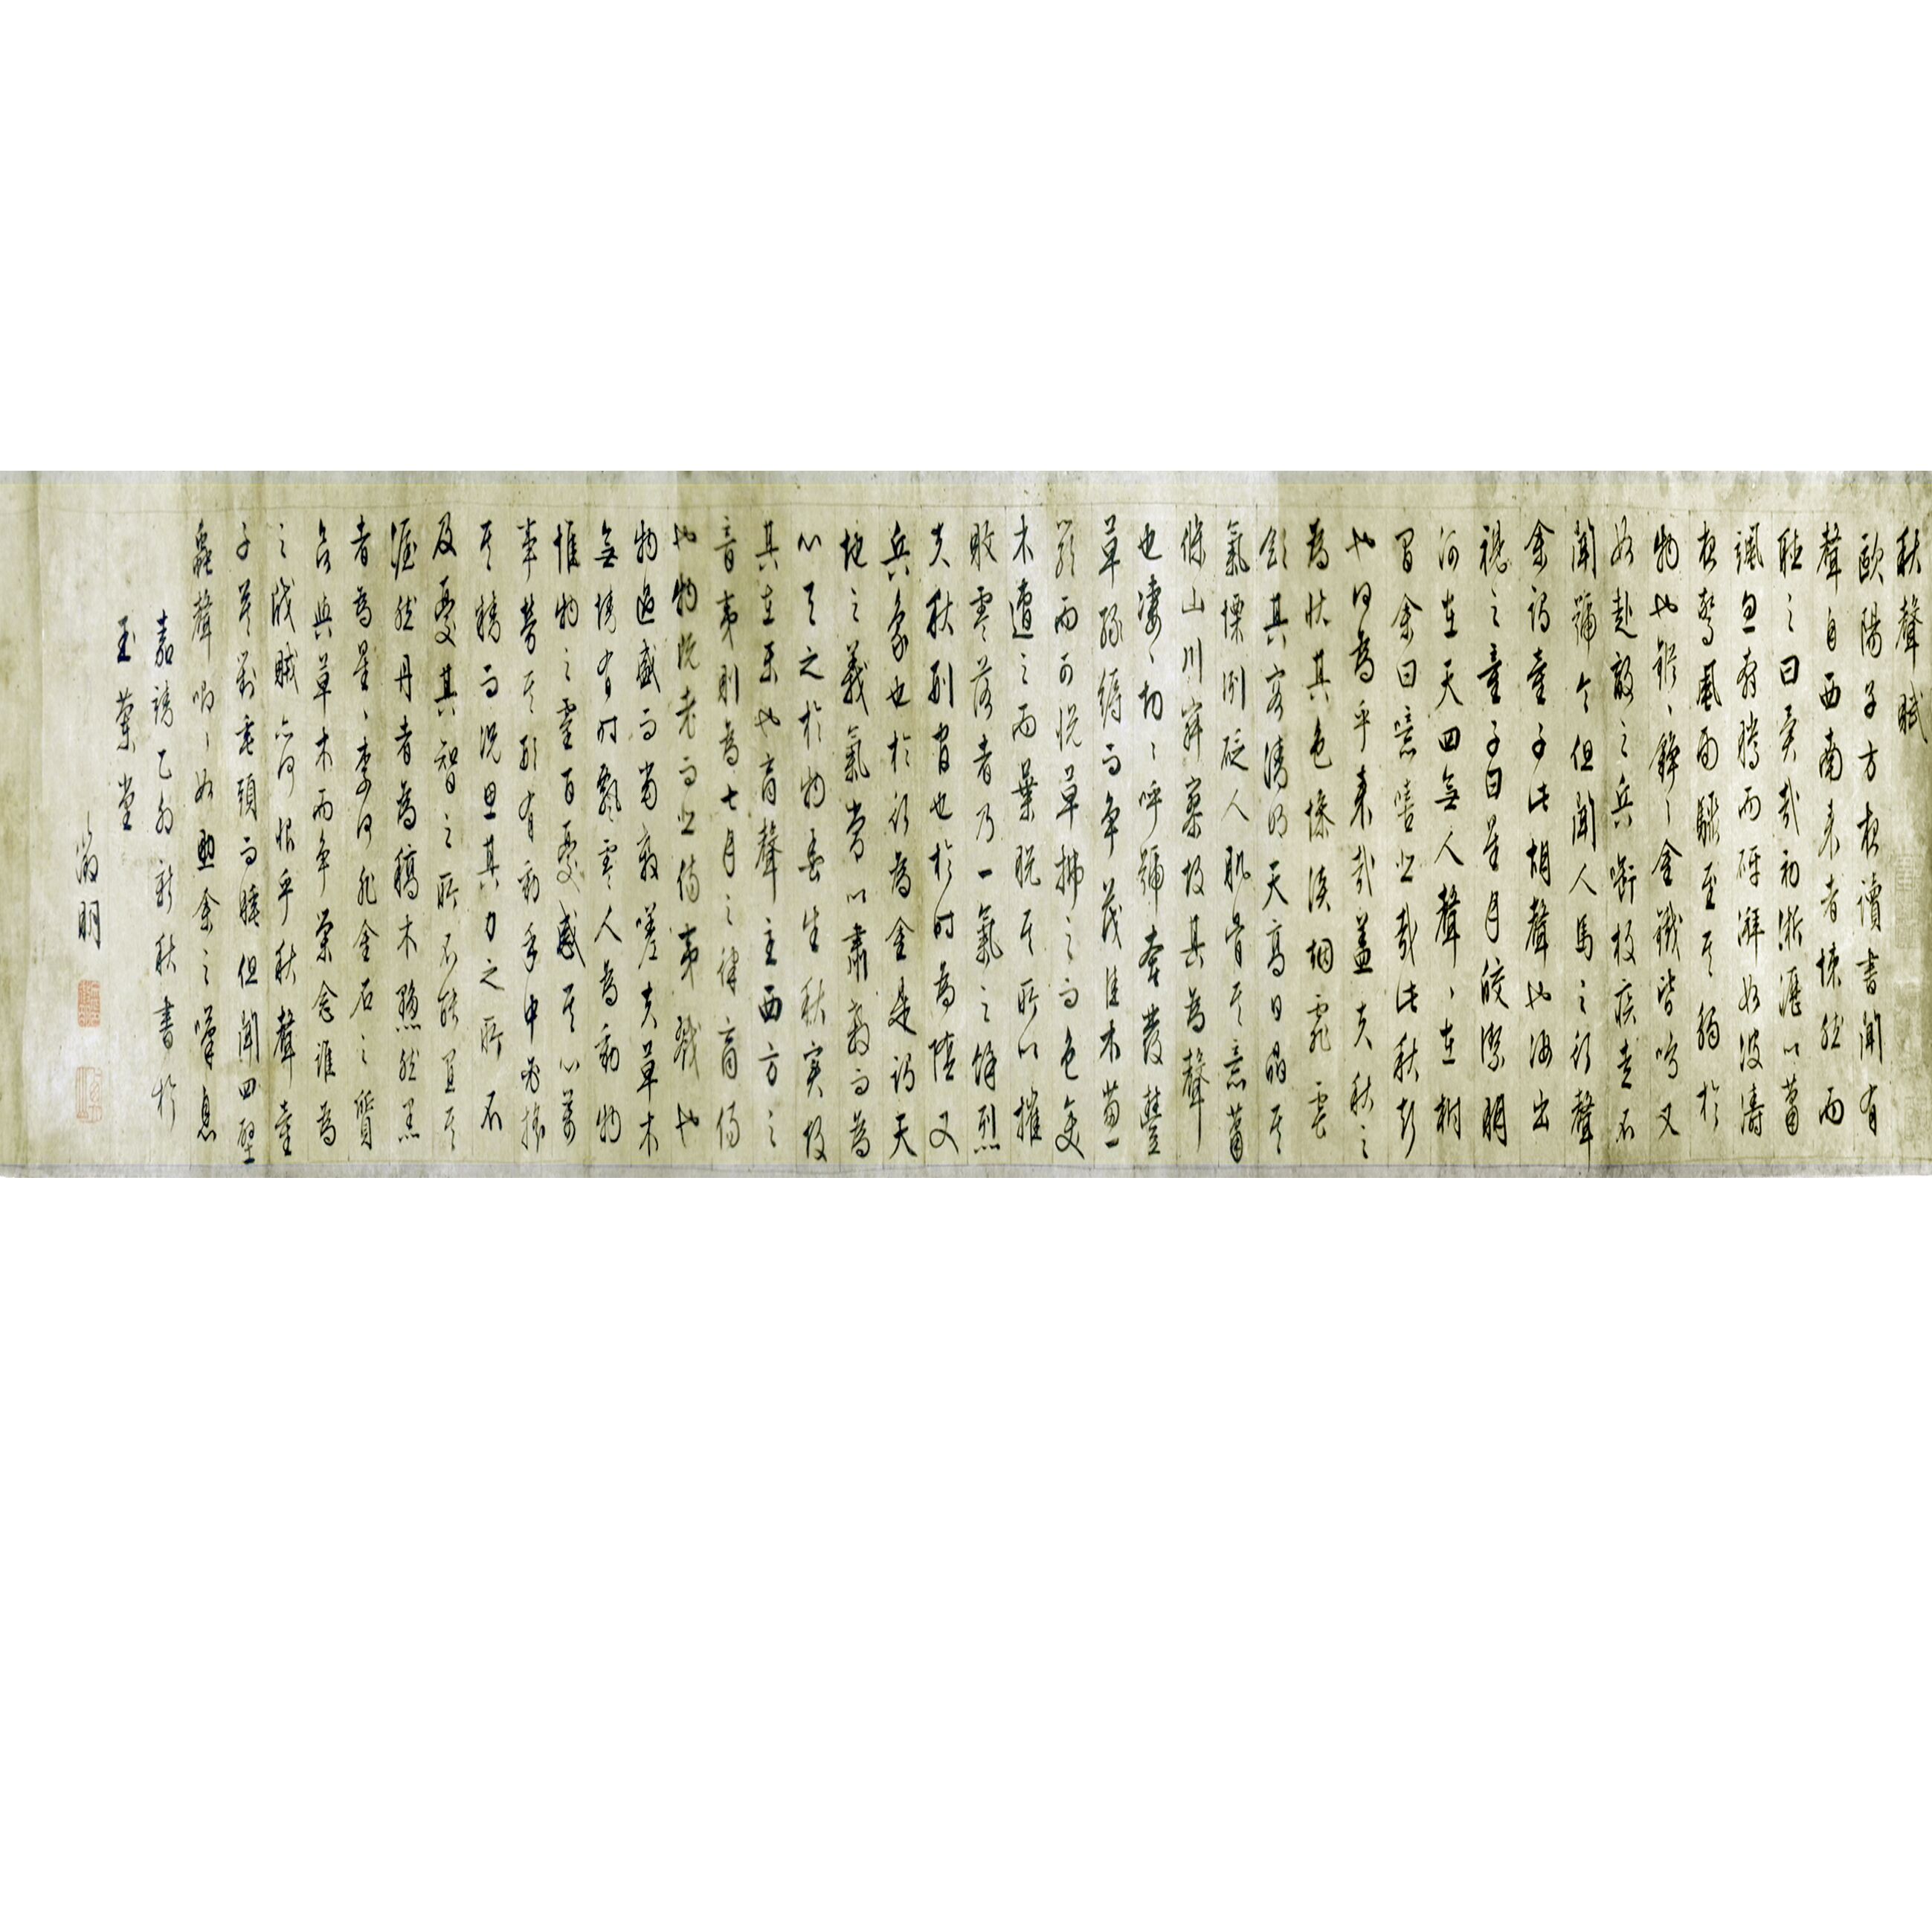 秋聲賦
歐陽子方夜讀書聞有
聲自西南來者悚然而
聽之曰異哉初淅瀝以蕭
颯忽奔騰而砰湃如波濤
夜驚風雨驟至其觸於
物也鏦、錚、金鐵皆鳴又
如赴敵之兵銜枚疾走不
聞號令但聞人馬之行聲
余謂童子此胡聲也汝出
視之童子曰星月皎潔明
河在天四無人聲、在樹
間余曰噫嘻悲哉此秋聲
也何為乎來哉蓋夫秋之
為狀其色慘淡烟霏雲
斂其容清明天高日晶其
氣慄冽砭人肌骨其意蕭
條山川寂寥故其為聲
也淒、切、呼號奔發豐
草綠縟而爭茂佳木蔥
蘢而可悅草拂之而色變
木遭之而葉脫其所以摧
敗零落者乃一氣之餘烈
夫秋刑官也於時為陰又
兵象也於行為金是謂天
地之義氣常以肅殺而為
心天之於物春生秋實故
其在樂也商聲主西方之
音夷則為七月之律商傷
也物既老而悲傷夷戮也
物過盛而當殺嗟夫草木
無情有時飄零人為動物
惟物之靈百憂感其心萬
事勞其形有動乎中必搖
其精而況思其力之所不
及憂其智之所不能宜其
渥然丹者為槁木黟然黑
者為星、奈何非金石之質
欲與草木而爭榮念誰為
之戕賊亦何恨乎秋聲童
子莫對垂頭而睡但聞四壁
蟲聲唧、如助余之嘆息
嘉靖乙卯新秋書於
玉蘭堂
徵明